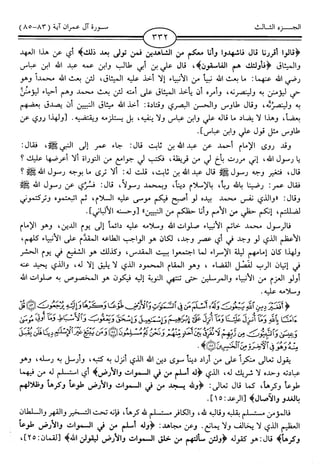 الجـــزء الثـــالـث
٣٣٢
سـورة آل عمران آية (٨٣-٨٥)
﴿قالوا أقررنا قال فاشهدوا وأنا معكم من الشاهدين فمن تولى بعد ذلك﴾ أي عن هذا العهد
والميثاق ﴿فأولئك هم الفاسقون﴾، قال علي بن أبي طالب وابن عمه عبد الله ابن عباس
رضي الله عنهما: ما بعث الله نبياً من الأنبياء إلا أخذ عليه الميثاق، لئن بعث الله محمداً وهو
حي ليؤمنن به ولينصرنه، وأمره أن يأخذ الميثاق على أمته لئن بعث محمد وهم أحياء ليؤمنُنّ
به ولينصرُنّه، وقال طاوس والحسن البصري وقتادة: أخذ الله ميثاق النبيين أن يصدق بعضهم
بعضاً، وهذا لا يضاد ما قاله علي وابن عباس ولا ينفيه، بل يستلزمه ويقتضيه. [ولهذا روي عن
طاوس مثل قول علي وابن عباس].
وقد روى الإمام أحمد عن عبد الله بن ثابت قال: جاء عمر إلى النبي ﷺ، فقال:
يا رسول الله، إني مررت بأخ لي من قريظة، فكتب لي جوامع من التوراة ألا أعرضها عليك ؟
قال: فتغير وجه رسول ﷺ قال عبد الله بن ثابت، قلت له: ألا ترى ما بوجه رسول الله ﷺ ؟
فقال عمر: رضينا بالله رباً، بالإسلام ديناً، وبمحمد رسولاً، قال: فسُرِّي عن رسول الله ﷺ
وقال: «والذي نفس محمد بيده لو أصبح فيكم موسى عليه السلام، ثم اتبعتموه وتركتموني
لضللتم، إنكم حظي من الأمم وأنا حظكم من النبيين» [وحسنه الألباني].
فالرسول محمد خاتم الأنبياء صلوات الله وسلامه عليه دائماً إلى يوم الدين، وهو الإمام
الأعظم الذي لو وجد في أي عصر وجد، لكان هو الواجب الطاعه المقدّم على الأنبياء كلهم،
ولهذا كان إمامهم ليلة الإسراء لما اجتمعوا ببيت المقدس، وكذلك هو الشفيع في يوم الحشر
في إتيان الرب لفصل القضاء ، وهو المقام المحمود الذي لا يليق إلا له، والذي يحيد عنه
أولو العزم من الأنبياء والمرسلين حتى تنتهي النوبة إليه فيكون هو المخصوص به صلوات الله
وسلامه عليه.
يقول تعالى منكراً على من أراد ديناً سوى دين الله الذي أنزل به كتبه، وأرسل به رسله، وهو
عبادته وحده لا شريك له، الذي ﴿له أسلم من في السموات والأرض﴾ أي استسلم له من فيهما
طوعاً وكرهاً، كما قال تعالى: ﴿ولله يسجد من في السموات والأرض طوعاً وكرهاً وظلالهم
بالغدو والآصال﴾ [الرعد: ١٥].
فالمؤمن مستسلم بقلبه وقالبه لله، والكافر مستسلم لله كرهاً، فإنه تحت التسخير والقهر والسلطان
العظيم الذي لا يخالف ولا يمانع. وعن مجاهد: ﴿وله أسلم من في السموات والأرض طوعاً
وكرهاً﴾ قال: هو كقوله ﴿ولئن سألتهم من خلق السموات والأرض ليقولن الله﴾ [لقمان: ٢٥]،